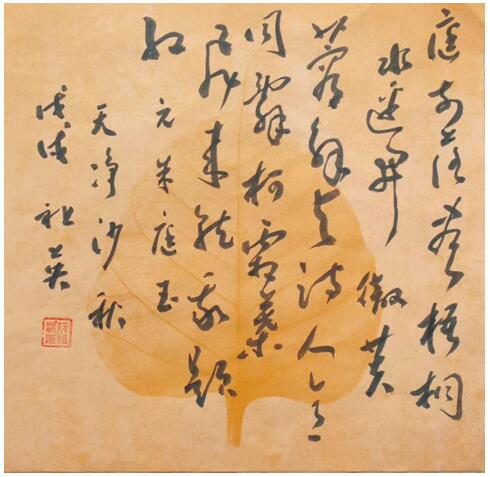 庭前落尽梧桐
水边开徹芙
蓉解与诗人意
同辞柯霜葉
飞来就我题
红 元朱庭玉
天净沙秋
戊戌 祖英